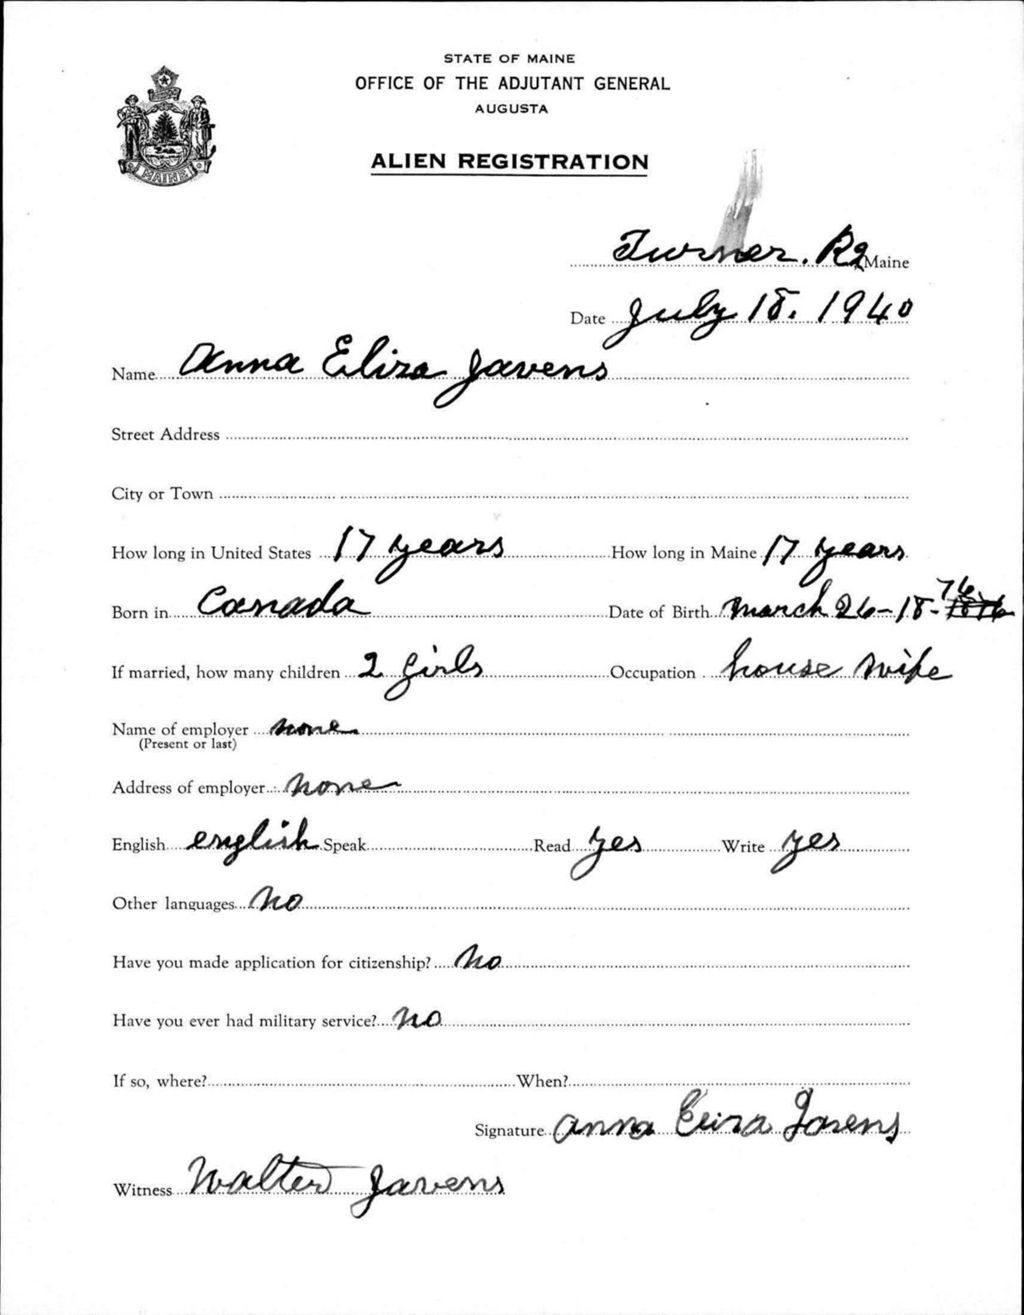 STATE OF MAINE
OFFICE OF THE ADJUTANT GENERAL
AUGUSTA
ALIEN REGISTRATION
MAINE
Turner. R2 Maine
Date July 18. 1940
Name Anna Eliza Javens
Street Address
City or Town
How long in United States 17 years How long in Maine 17 years
Born in Canada Date of Birth March 26-18-76
If married, how many children 2 girls Occupation house wife
Name of employer none
(Present or last)
Address of employer none
English english Speak Read yes Write yes
Other languages No
Have you made application for citizenship? No
Have you ever had military service? No
If so, where? When?
Signature Anna Eliza Javens
Witness Walter Javens